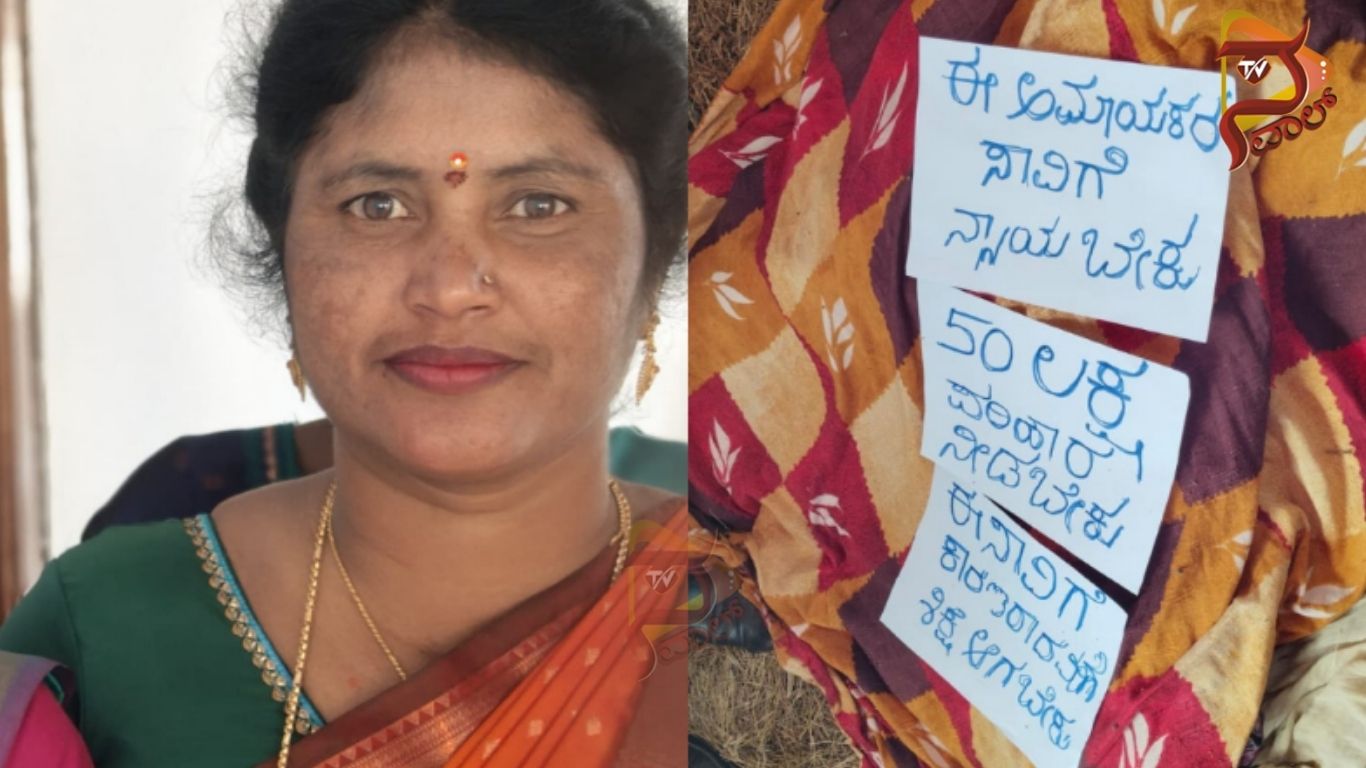 ಈ ಅಮಾಯಕರ
ಸಾವಿಗೆ
ನ್ಯಾಯ ಬೇಕು
50 ಲಕ್ಷ
ಪರಿಹಾರ
ನೀಡಬೇಕು
ಈ ಸಾವಿಗೆ
ಕಾರಣರಾದವರಿಗೆ
ಶಿಕ್ಷೆ ಆಗಬೇಕು
TV
ಸವಾಲ್
TV
ಸವಾಲ್